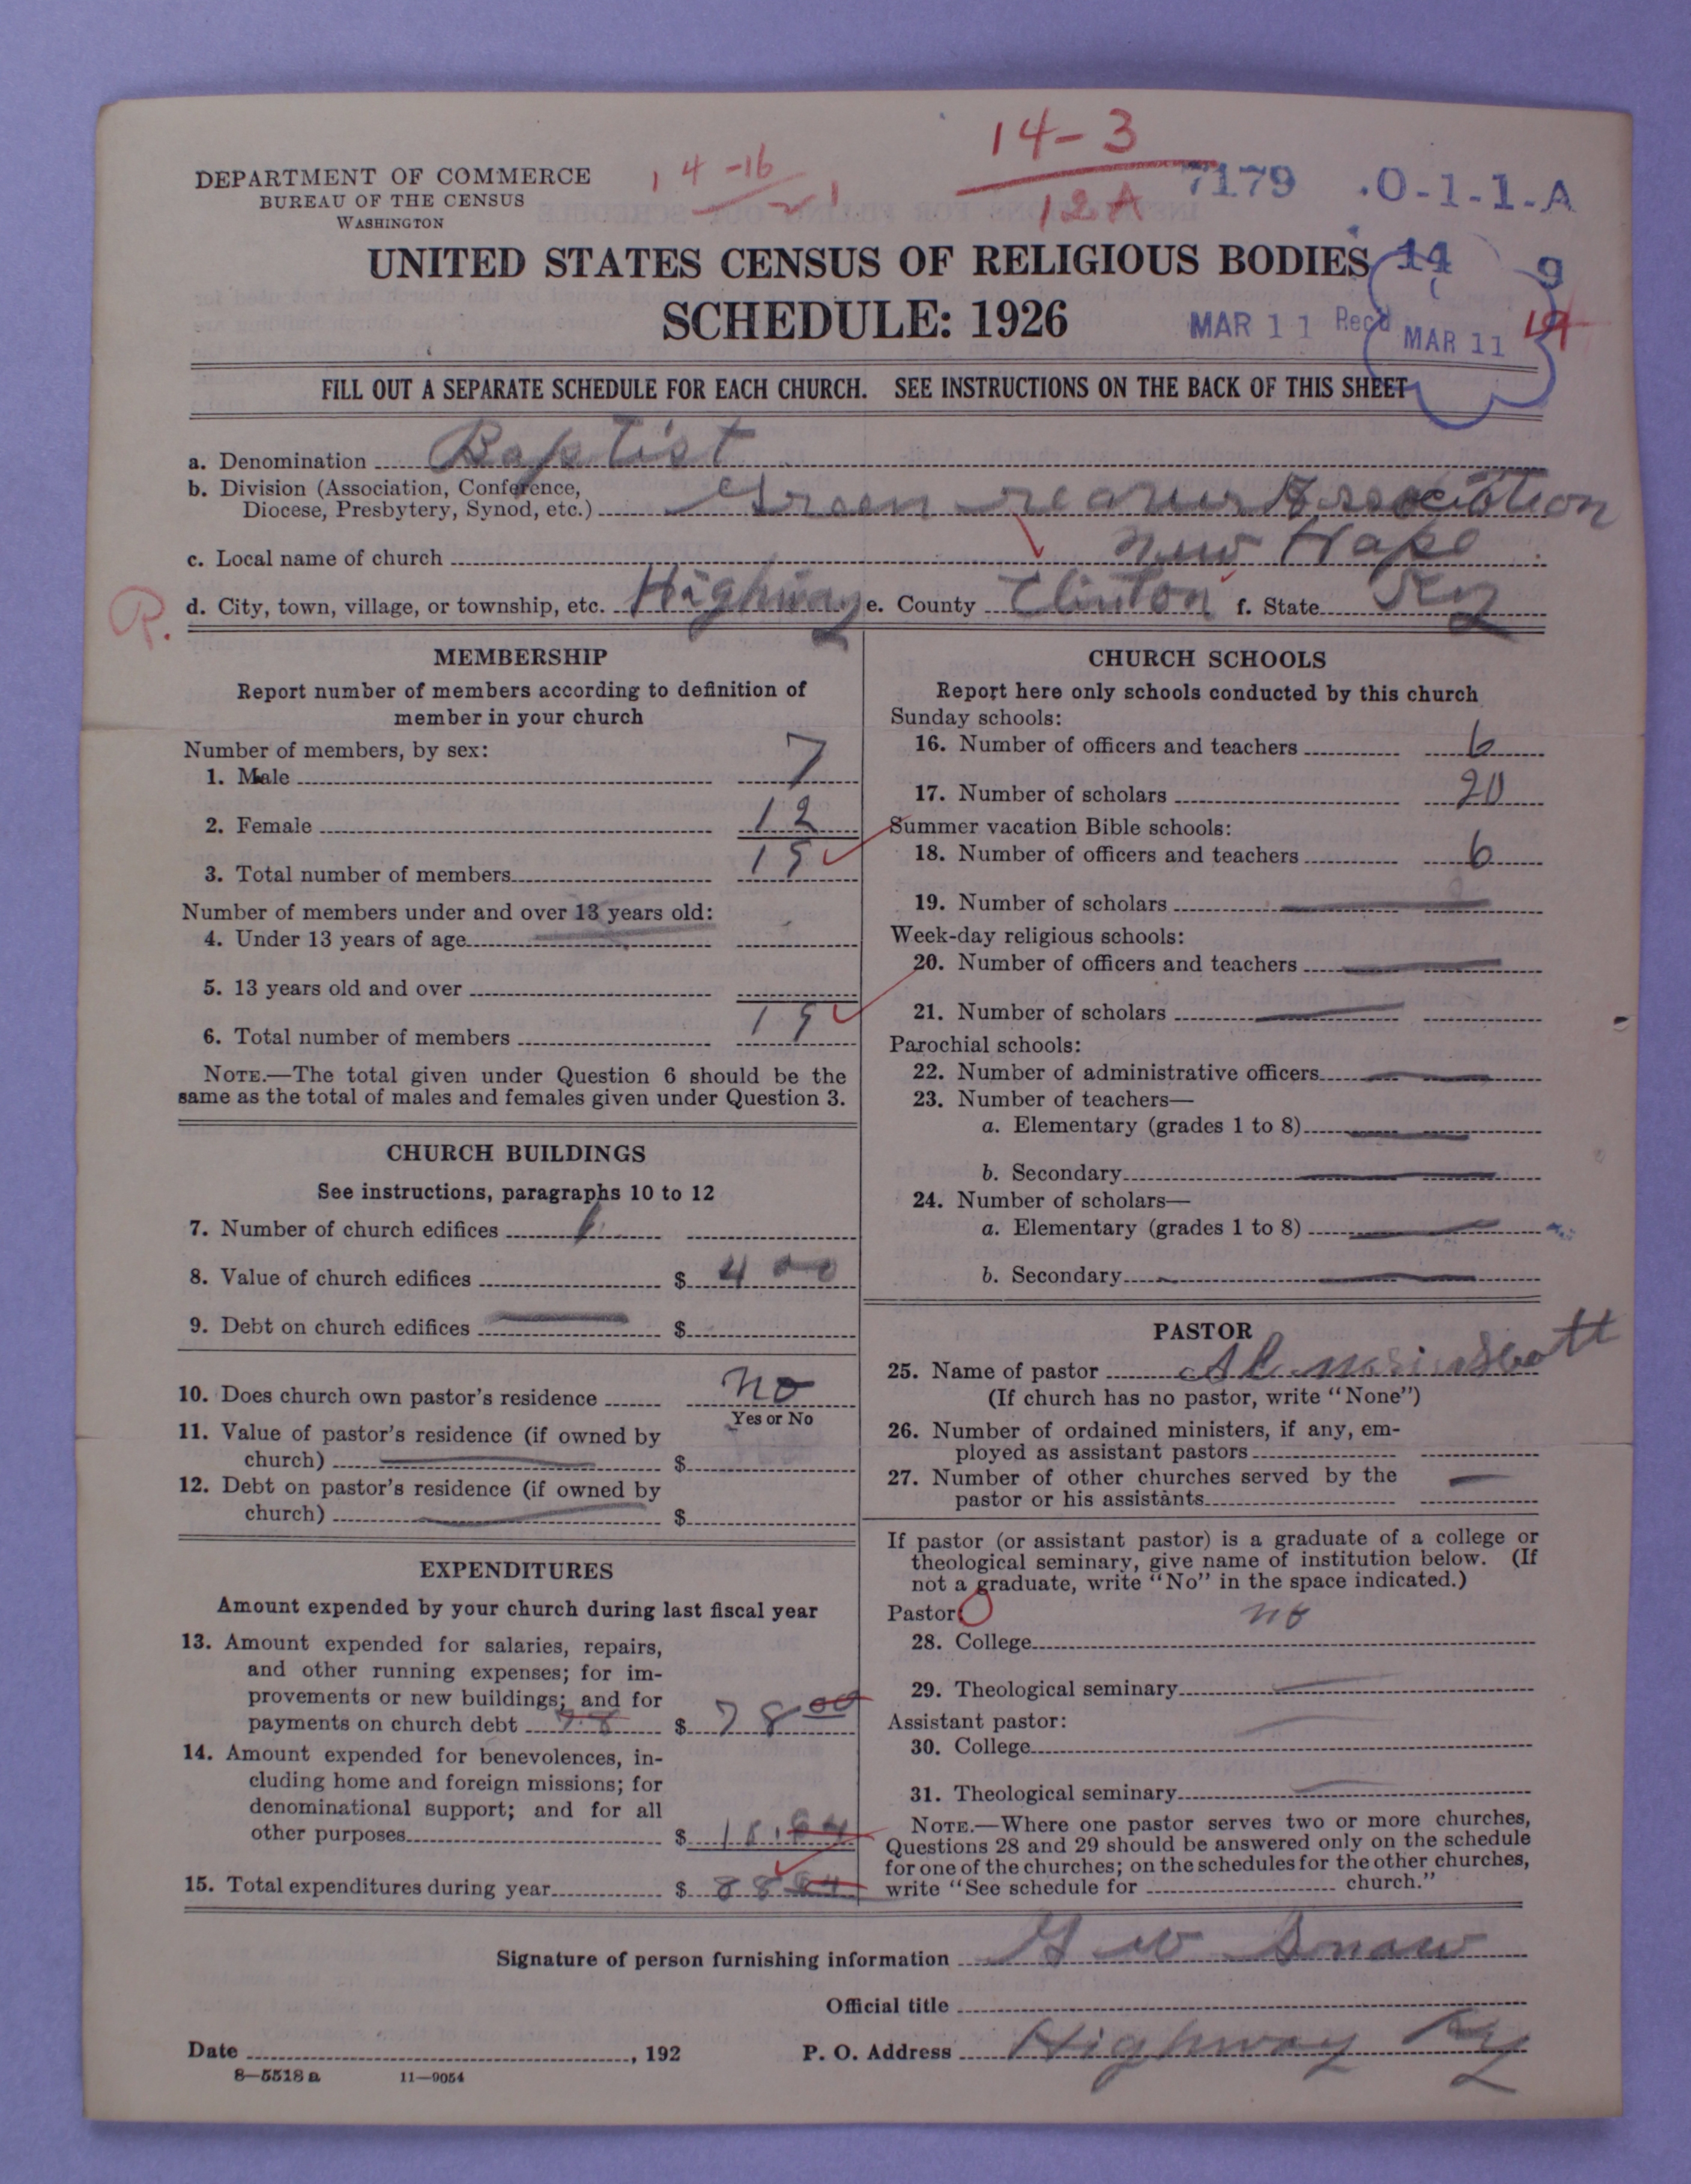 14-3
14-16
12A
21
7179
.O-1-1-A
DEPARTMENT OF COMMERCE
BUREAU OF THE CENSUS
WASHINGTON
UNITED STATES CENSUS OF RELIGIOUS BODIES
14
9
SCHEDULE: 1926
MAR 11 Rec'd MAR 11
FILL OUT A SEPARATE SCHEDULE FOR EACH CHURCH. SEE INSTRUCTIONS ON THE BACK OF THIS SHEET
a. Denomination Baptist
b. Division (Association, Conference,
Diocese, Presbytery, Synod, etc.) Green Association
c. Local name of church New Hope
R.
d. City, town, village, or township, etc. Highway e. County Clinton f. State Ky
MEMBERSHIP
Report number of members according to definition of
member in your church
Number of members, by sex:
1. Male 7
2. Female 12
3. Total number of members 19
Number of members under and over 13 years old:
4. Under 13 years of age
5. 13 years old and over
6. Total number of members 19
NOTE.—The total given under Question 6 should be the
same as the total of males and females given under Question 3.
CHURCH BUILDINGS
See instructions, paragraphs 10 to 12
7. Number of church edifices 1
8. Value of church edifices $ 400
9. Debt on church edifices $
10. Does church own pastor's residence No
Yes or No
11. Value of pastor's residence (if owned by
church) $
12. Debt on pastor's residence (if owned by
church) $
EXPENDITURES
Amount expended by your church during last fiscal year
13. Amount expended for salaries, repairs,
and other running expenses; for im-
provements or new buildings; and for
payments on church debt 78 $ 78 00
14. Amount expended for benevolences, in-
cluding home and foreign missions; for
denominational support; and for all
other purposes $
15. Total expenditures during year $ 88
CHURCH SCHOOLS
Report here only schools conducted by this church
Sunday schools:
16. Number of officers and teachers 6
17. Number of scholars 20
Summer vacation Bible schools:
18. Number of officers and teachers 6
19. Number of scholars
Week-day religious schools:
20. Number of officers and teachers
21. Number of scholars
Parochial schools:
22. Number of administrative officers
23. Number of teachers—
a. Elementary (grades 1 to 8)
b. Secondary
24. Number of scholars—
a. Elementary (grades 1 to 8)
b. Secondary
PASTOR
25. Name of pastor Scott
(If church has no pastor, write "None")
26. Number of ordained ministers, if any, em-
ployed as assistant pastors
27. Number of other churches served by the
pastor or his assistants
If pastor (or assistant pastor) is a graduate of a college or
theological seminary, give name of institution below. (If
not a graduate, write "No" in the space indicated.)
Pastor:
28. College no
29. Theological seminary
Assistant pastor:
30. College
31. Theological seminary
NOTE.—Where one pastor serves two or more churches,
Questions 28 and 29 should be answered only on the schedule
for one of the churches; on the schedules for the other churches,
write "See schedule for church."
Signature of person furnishing information G W Snow
Official title
Date , 192
P. O. Address Highway Ky
8—5518 a 11—9054